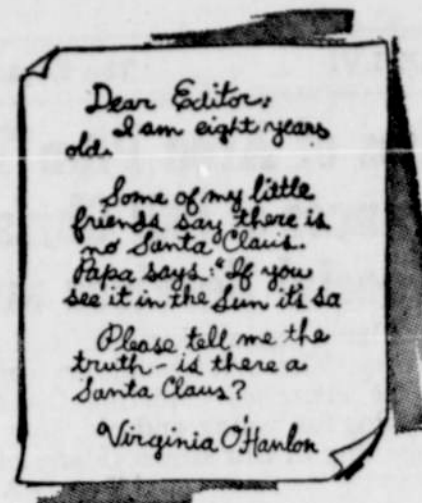 Dear Editor:
I am eight years
old.
Some of my little
friends say there is
no Santa Claus.
Papa says: "If you
see it in the Sun it's so
Please tell me the
truth - is there a
Santa Claus?
Virginia O'Hanlon